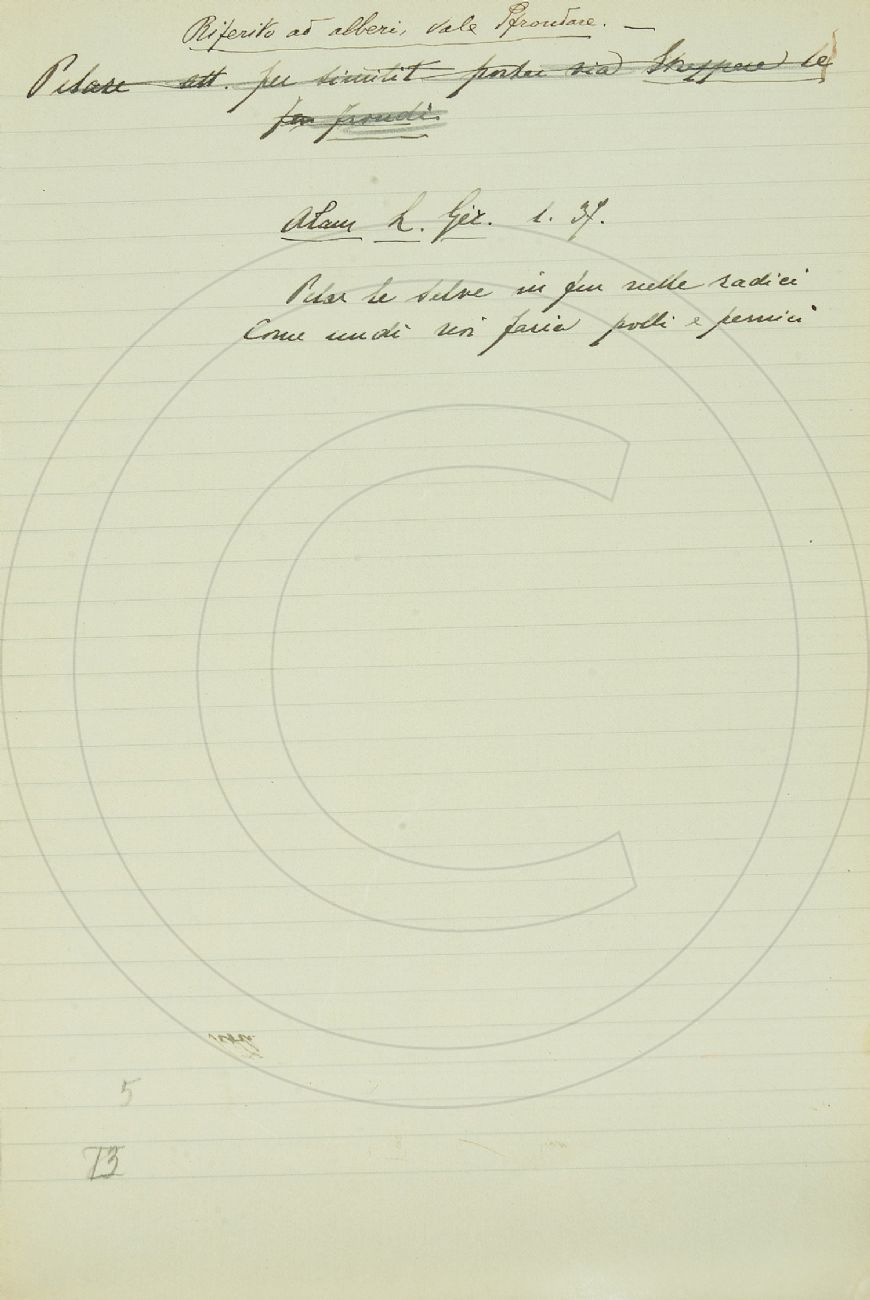 Riferito ad alberi, vale Sfrondare. —
Pelare att. per similit portar via Strappare le
frondi.
Alam. L. Gir. 1. 37.
Pelar le selve in fin nelle radici
Come undi noi faria polli e pernici
5
13